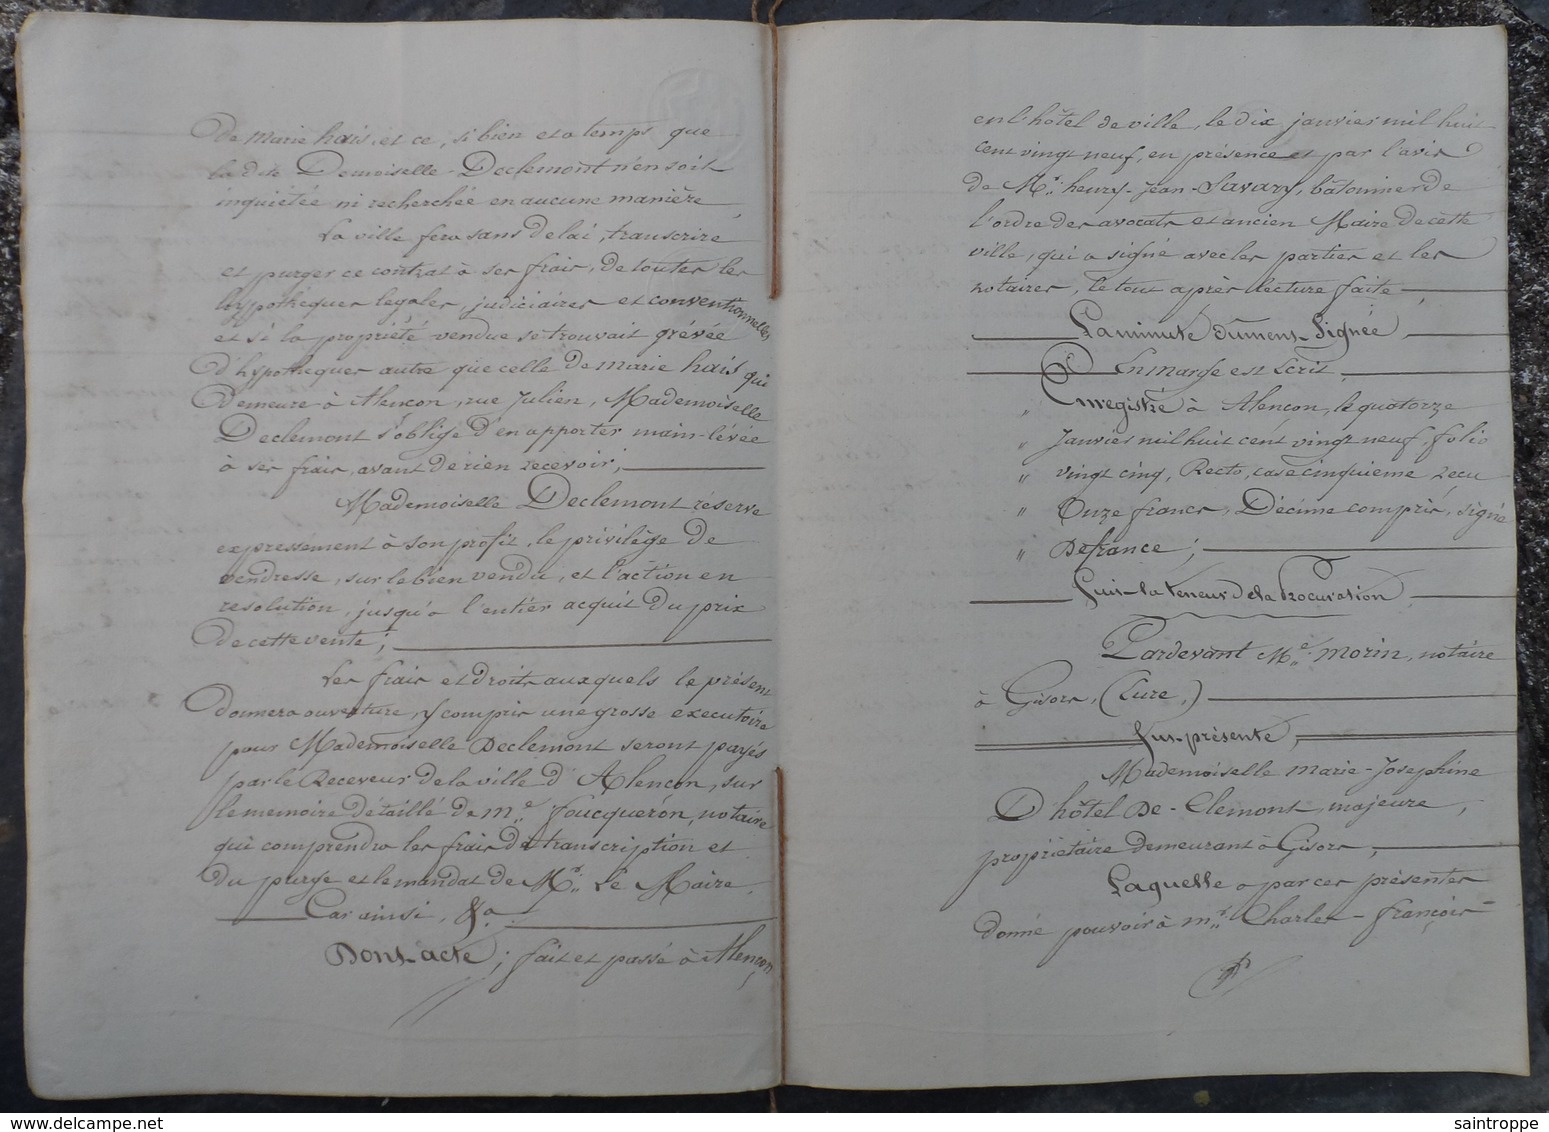 De Marie hais, et ce, si bien et a temps que
la dite Demoiselle Declemont n'en soit
inquiétée ni recherchée en aucune manière,
La ville fera sans delai, transcrire
et purger ce contrat à ses frais, de toutes les
hypothèques légales, judiciaires et conventionnelles
et si la propriété vendue se trouvait grévée
d'hypothèques autre que celle de Marie hais qui
Demeure à Alençon, rue Julien, Mademoiselle
Declemont s'oblige d'en apporter main-lévée
à ses frais, avant de rien recevoir;
Mademoiselle Declemont réserve
expressement à son profit, le privilège de
vendresse, sur le bien vendu, et l'action en
resolution, jusqu'a l'entier acquit du prix
de cette vente;
Les frais et droits auxquels le présent
donnera ouverture, y compris une grosse executoire
pour Mademoiselle Declemont seront payés
par le Receveur de la ville d'Alençon, sur
le memoire détaillé de Me. Foucqueron, notaire
qui comprendra les frais de transcription et
du purge et le mandat de Mr. Le Maire.
Car ainsi, &a.
Dont acte; fait et passé à Alençon
en l'hôtel de ville, le dix janvier mil huit
cent vingt neuf, en présence et par l'avis
de Mr. henry-Jean-Savary, bâtonnier de
l'ordre des avocats et ancien Maire de cette
ville, qui a signé avec les parties et les
notaires, le tout après lecture faite,
La minute dument Signée
En marge est Ecrit,
" Enregistré à Alençon, le quatorze
" Janvier mil huit cent vingt neuf, folio
" vingt cinq, Recto, case cinquieme reçu
" Onze francs, Décime compris, signé
" Defrance;
Suit la teneur de la Procuration
Pardevant Me. Morin, notaire
à Gisors, (Eure,)
Fut présente,
Mademoiselle Marie-Josephine
D'hôtel De-Clemont, majeure,
propriétaire demeurant à Gisors,
Laquelle a par ces présentes
donné pouvoir à Mr. Charles-françois-
saintroppe